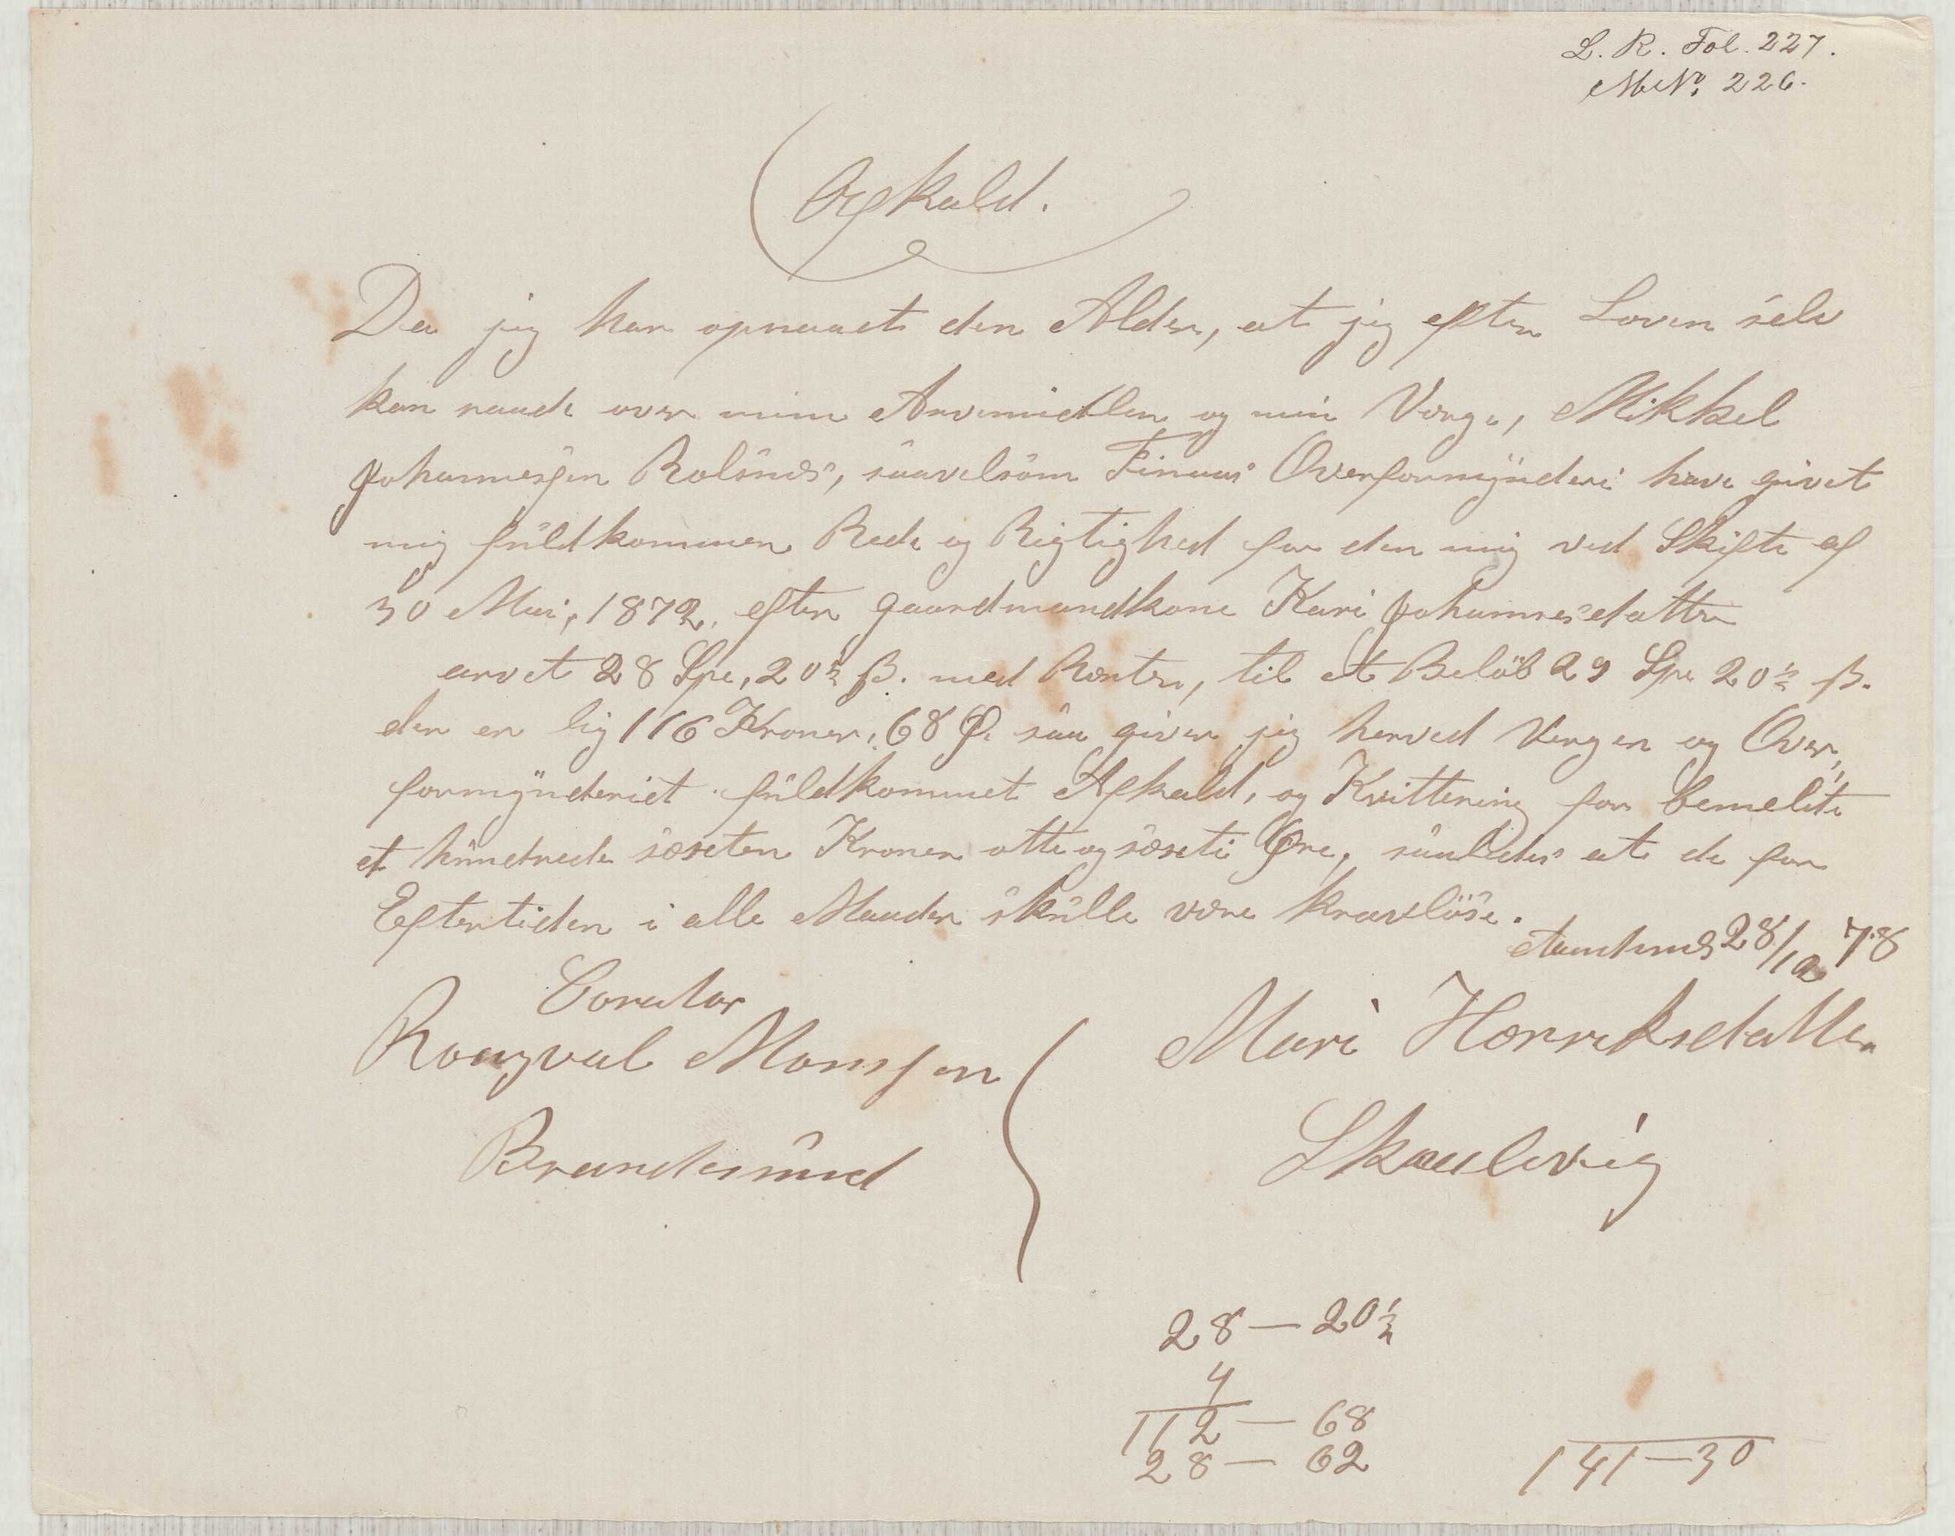 L. R. Fol. 227.
M.No. 226.
Afkald.
Da jeg har opnaaet den Alder, at jeg efter Loven selv
kan raade over mine Arvemidler og min Værge, Mikkel
Johannesjen Rolsnæs, saavelsom Finnaas Overformÿnderi have givet
mig fuldkommen Rede og Rigtighed for den mig ved Skifte af
30 Mai, 1872. efter Gaardmandkone Kari Johannesdatter
arvet 28 Spe, 20½ ß. med Renter, til et Beløb 29 Spe 20½ ß.
der er lig 116 Kroner, 68 Ø. saa giver jeg herved Vergen og Over,
formÿnderiet fuldkommet Afkald, og Kvittering for bemeldte
et hundrede sexten Kroner otte og sexti Øre, saaledes at de for
Eftertiden i alle Maader skulle være kravløse.
28/10 78
Corator
Rongval Monsjen
Brandesund
Mari Henriksdatter
Skaalevig
28 — 20½
4
112 — 68
28 — 62
141 — 30